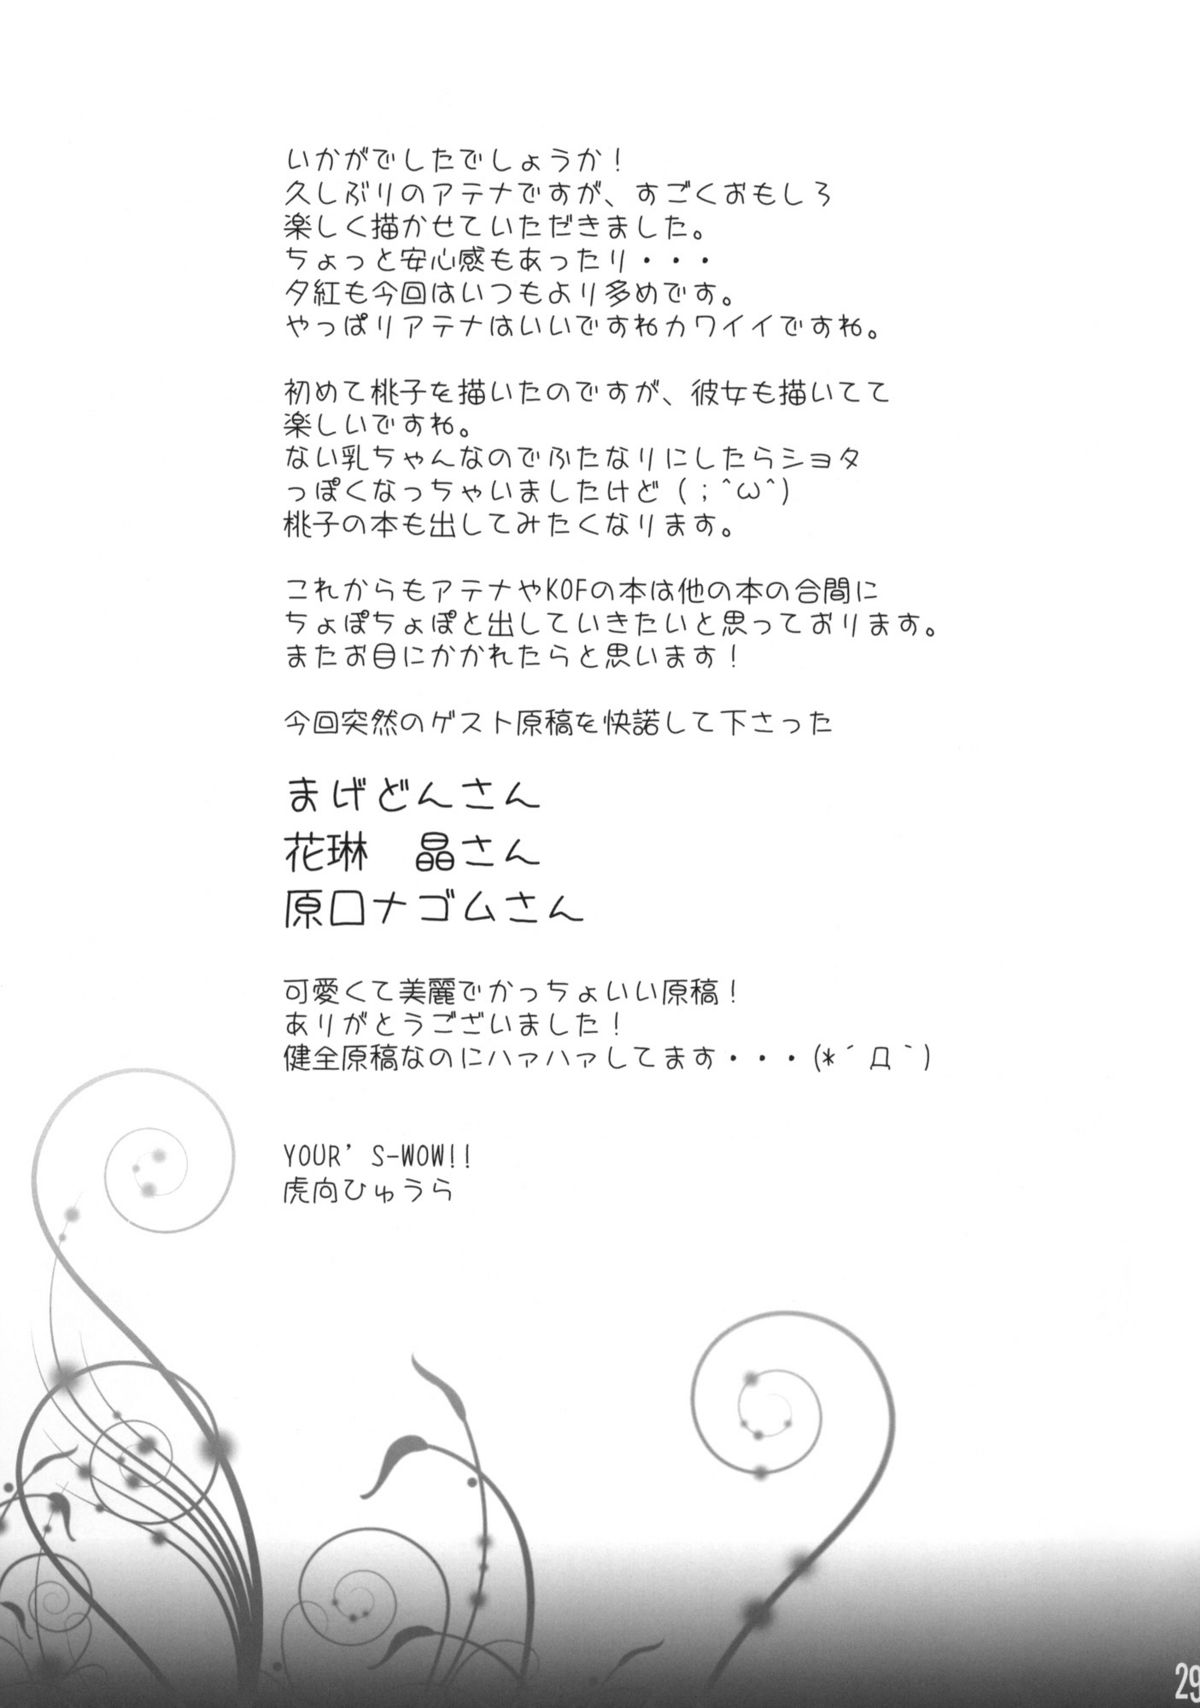 いかがでしたでしょうか！
久しぶりのアテナですが、すごくおもしろ
楽しく描かせていただきました。
ちょっと安心感もあったり・・・
夕紅も今回はいつもより多めです。
やっぱりアテナはいいですねカワイイですね。
初めて桃子を描いたのですが、彼女も描いてて
楽しいですね。
ない乳ちゃんなのでふたなりにしたらショタ
っぽくなっちゃいましたけど（；^ω^）
桃子の本も出してみたくなります。
これからもアテナやKOFの本は他の本の合間に
ちょぽちょぽと出していきたいと思っております。
またお目にかかれたらと思います！
今回突然のゲスト原稿を快諾して下さった
まげどんさん
花琳　晶さん
原口ナゴムさん
可愛くて美麗でかっちょいい原稿！
ありがとうございました！
健全原稿なのにハァハァしてます・・・(*´Д｀)
YOUR’S-WOW!!
虎向ひゅうら
29